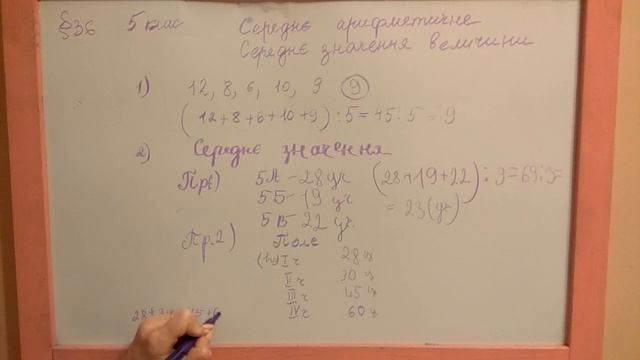 §36 5 клас Середнє арифметичне
Середнє значення величини
1) 12, 8, 6, 10, 9 9
(12+8+6+10+9):5=45:5=9
2) Середнє значення
Пр1) 5А-28 уч (28+19+22):3=69:3=
5Б-19 уч =23(уч)
5В-22 уч.
Пр.2) Поле
I ч 28 ц
II ч 30 ц
III ч 45 ц
IV ч 60 ц